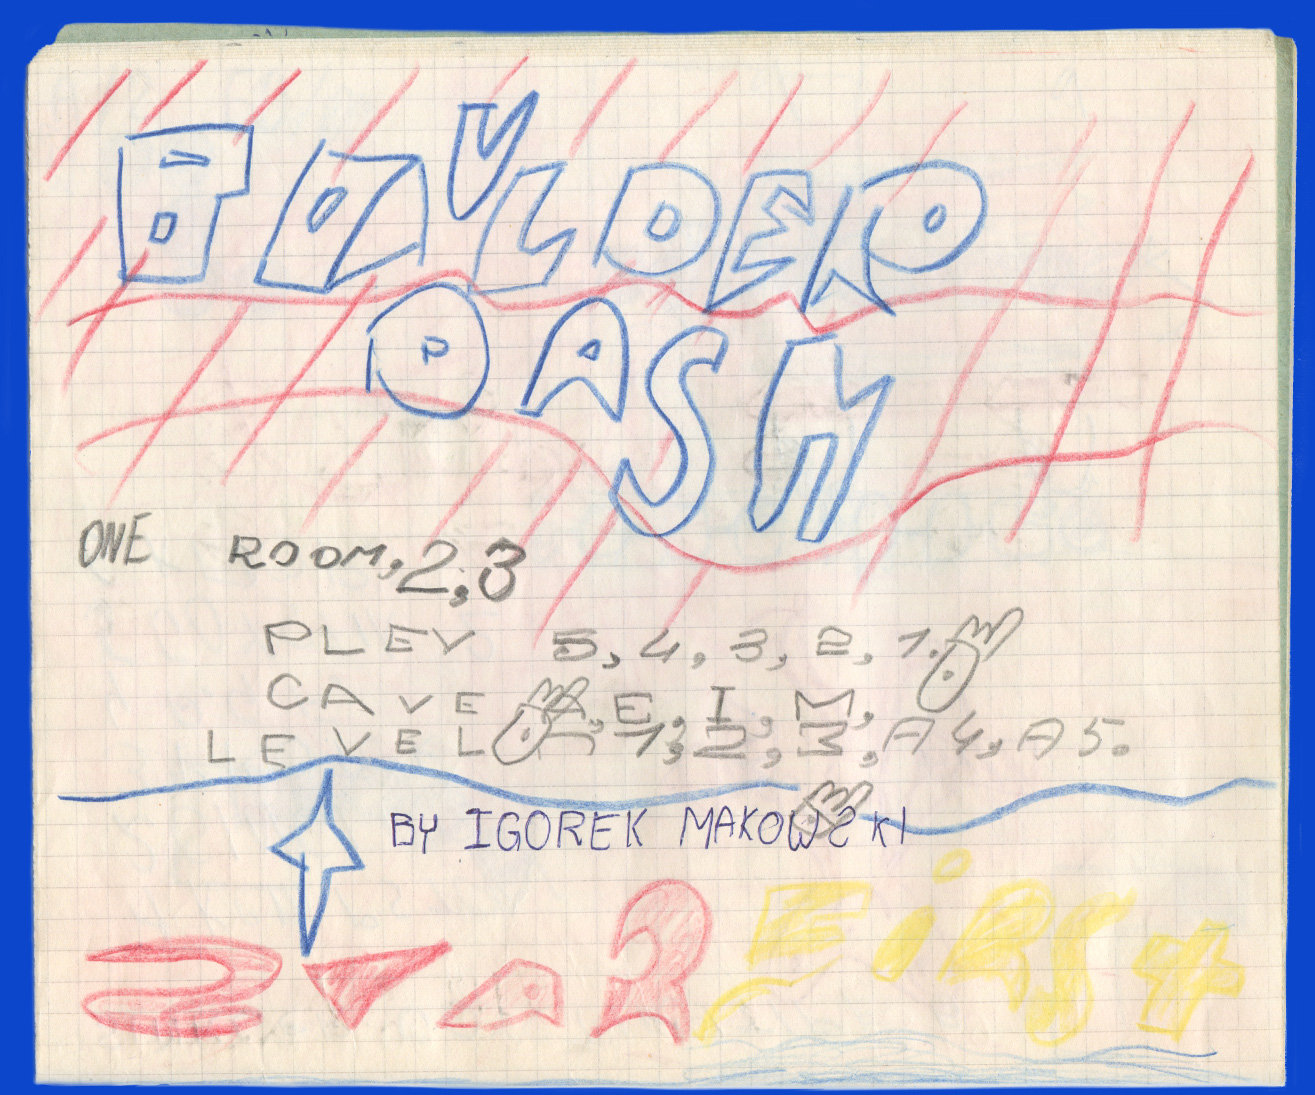 BOULDER
DASH
ONE ROOM, 2, 3
PLEY 5, 4, 3, 2, 1.
CAVE A, E, I, M,
LEVEL A 1, 2, 3, A4, A5.
BY IGOREK MAKOWSKI
STAR FIRST